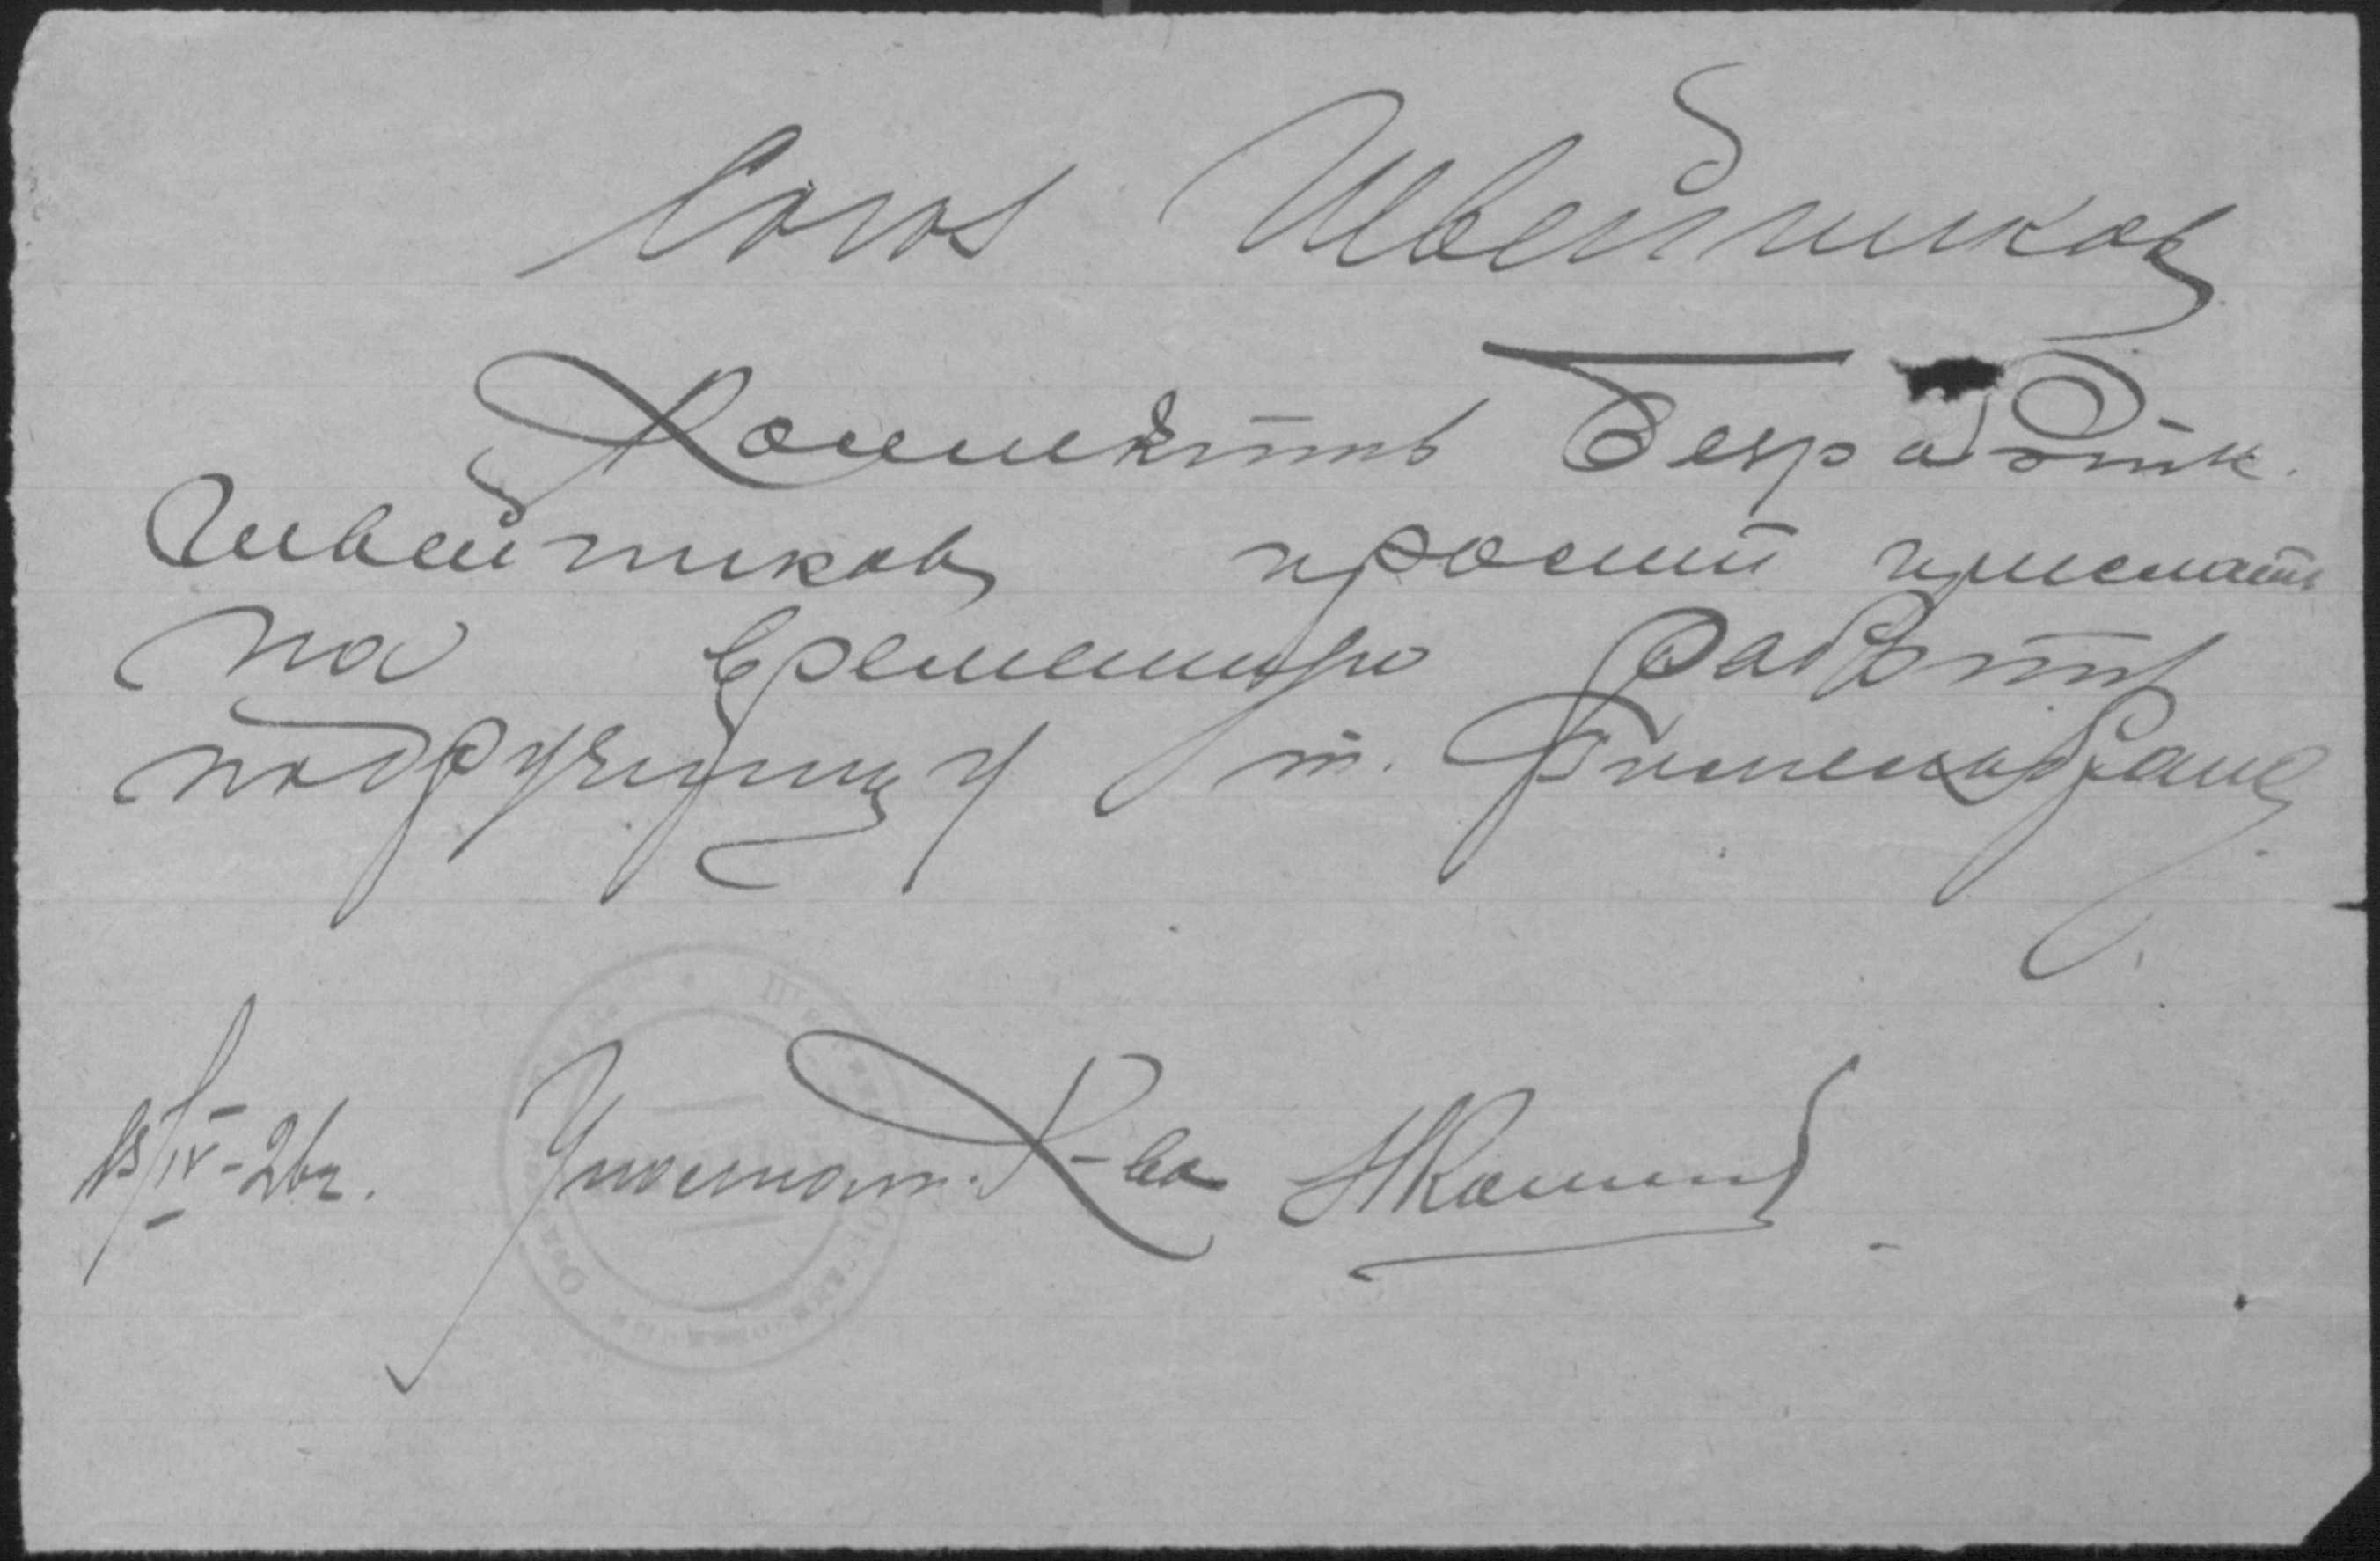 Союз Швейников
Комитет Безработн.
Швейников просит прислать
на временную работу
подручницу т.
13/IV-26г. Уполномоч. К-ва